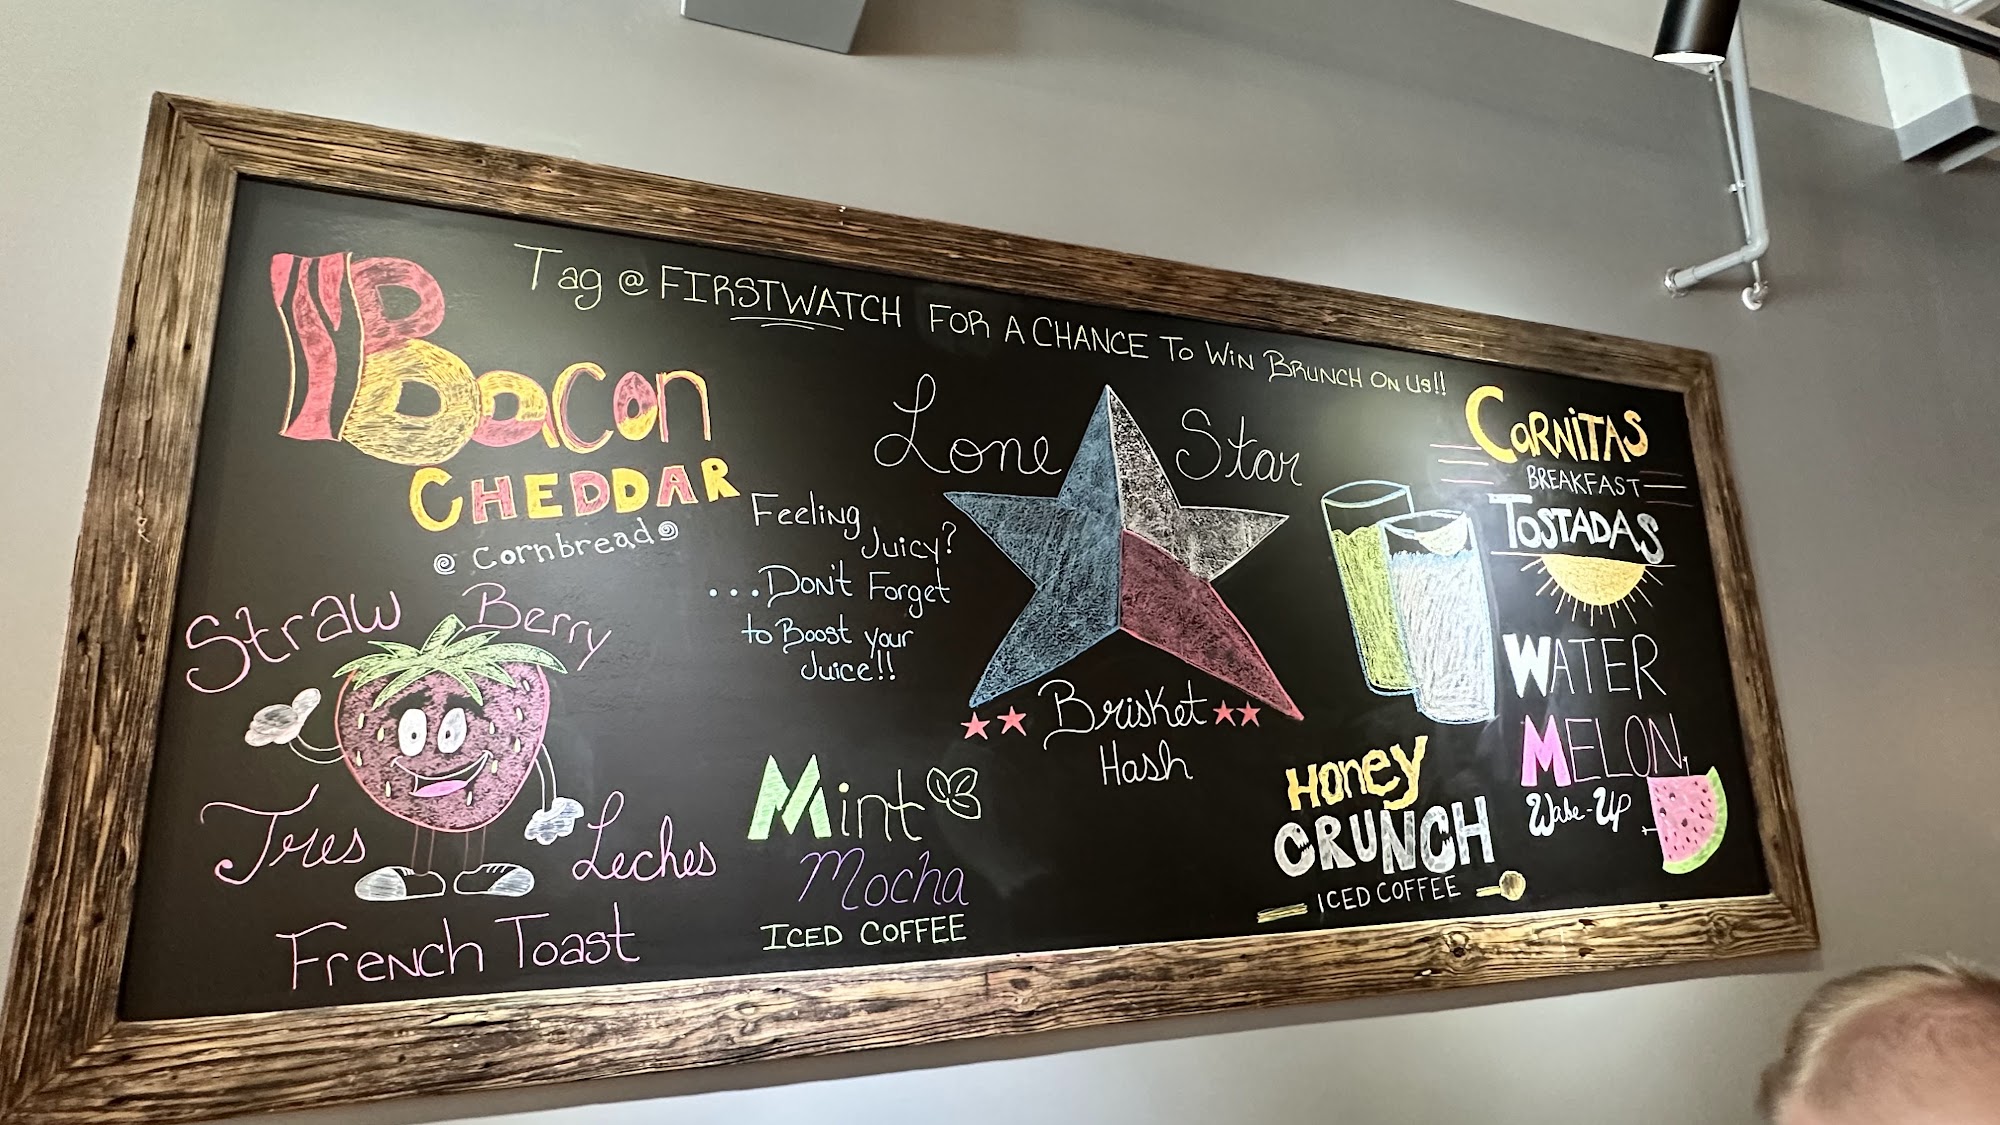 Tag @FIRSTWATCH FOR A CHANCE To WiN BRUNCH ON Us!!
Bacon
CHEDDAR
Cornbread
Straw Berry
Tres Leches
French Toast
Feeling
Juicy?
...Don't Forget
to Boost your
Juice!!
Mint
Mocha
ICED COFFEE
Lone Star
Brisket
Hash
Honey
CRUNCH
ICED COFFEE
CARNiTAS
BREAKFAST
TOSTADAS
WATER
MELON
Wake-Up